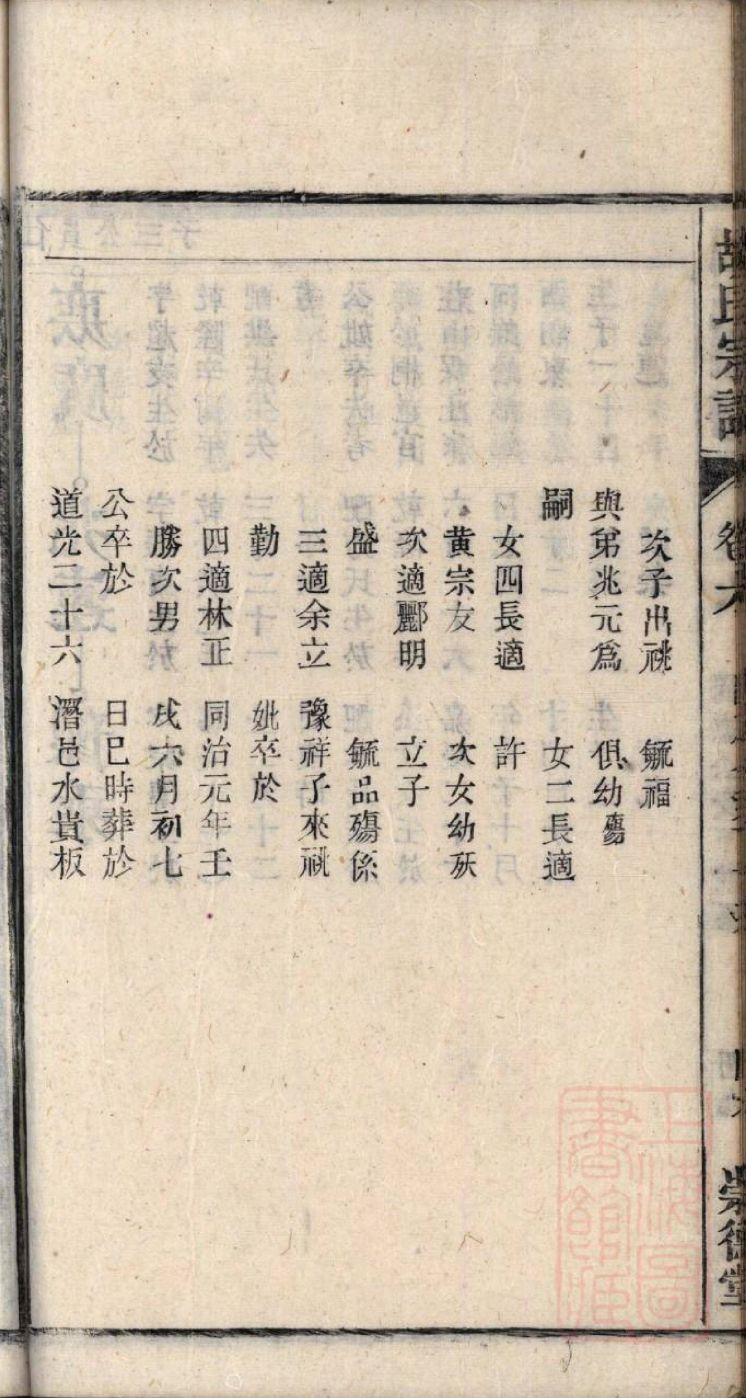 胡氏宗譜
卷六
崇德堂
次子出祧
與弟兆元爲
嗣
女四長適
黃宗友
次適酈明
盛
三適余立
勤
四適林正
勝次男
公卒於
道光二十六
毓福
俱幼殤
女二長適
許
次女幼殀
立子
毓品殤係
豫祥子來祧
妣卒於
同治元年壬
戌六月初七
日巳時葬於
潛邑水貴板
上海圖書館藏